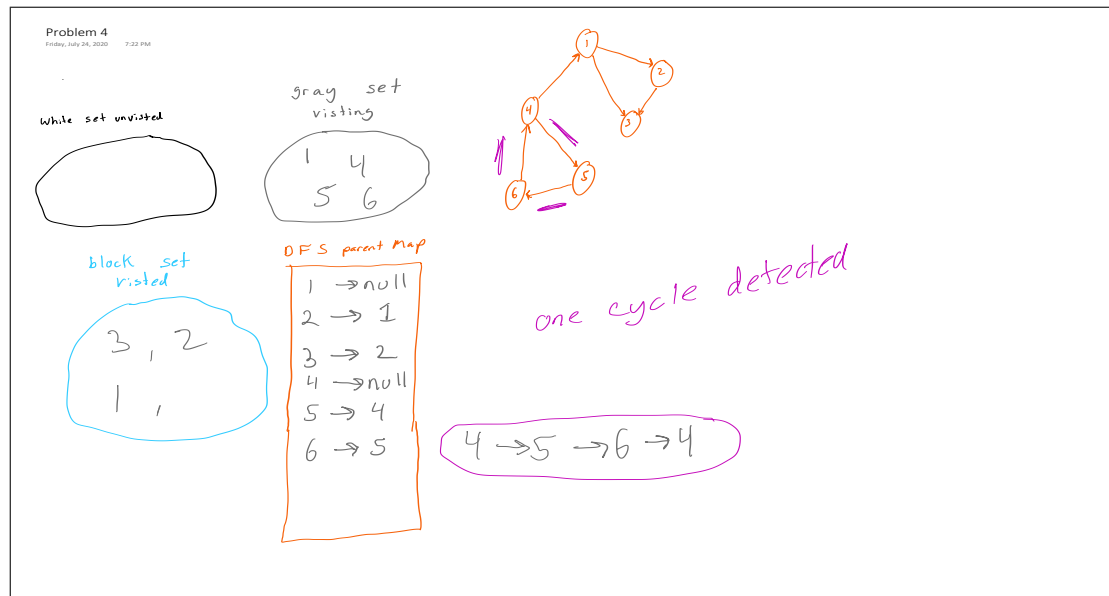 Problem 4
Friday, July 24, 2020 7:22 PM
White set unvisted
gray set
visting
1 4
5 6
1
2
3
4
5
6
block set
visted
3 , 2
1 ,
DFS parent Map
1 → null
2 → 1
3 → 2
4 → null
5 → 4
6 → 5
one cycle detected
4 → 5 → 6 → 4